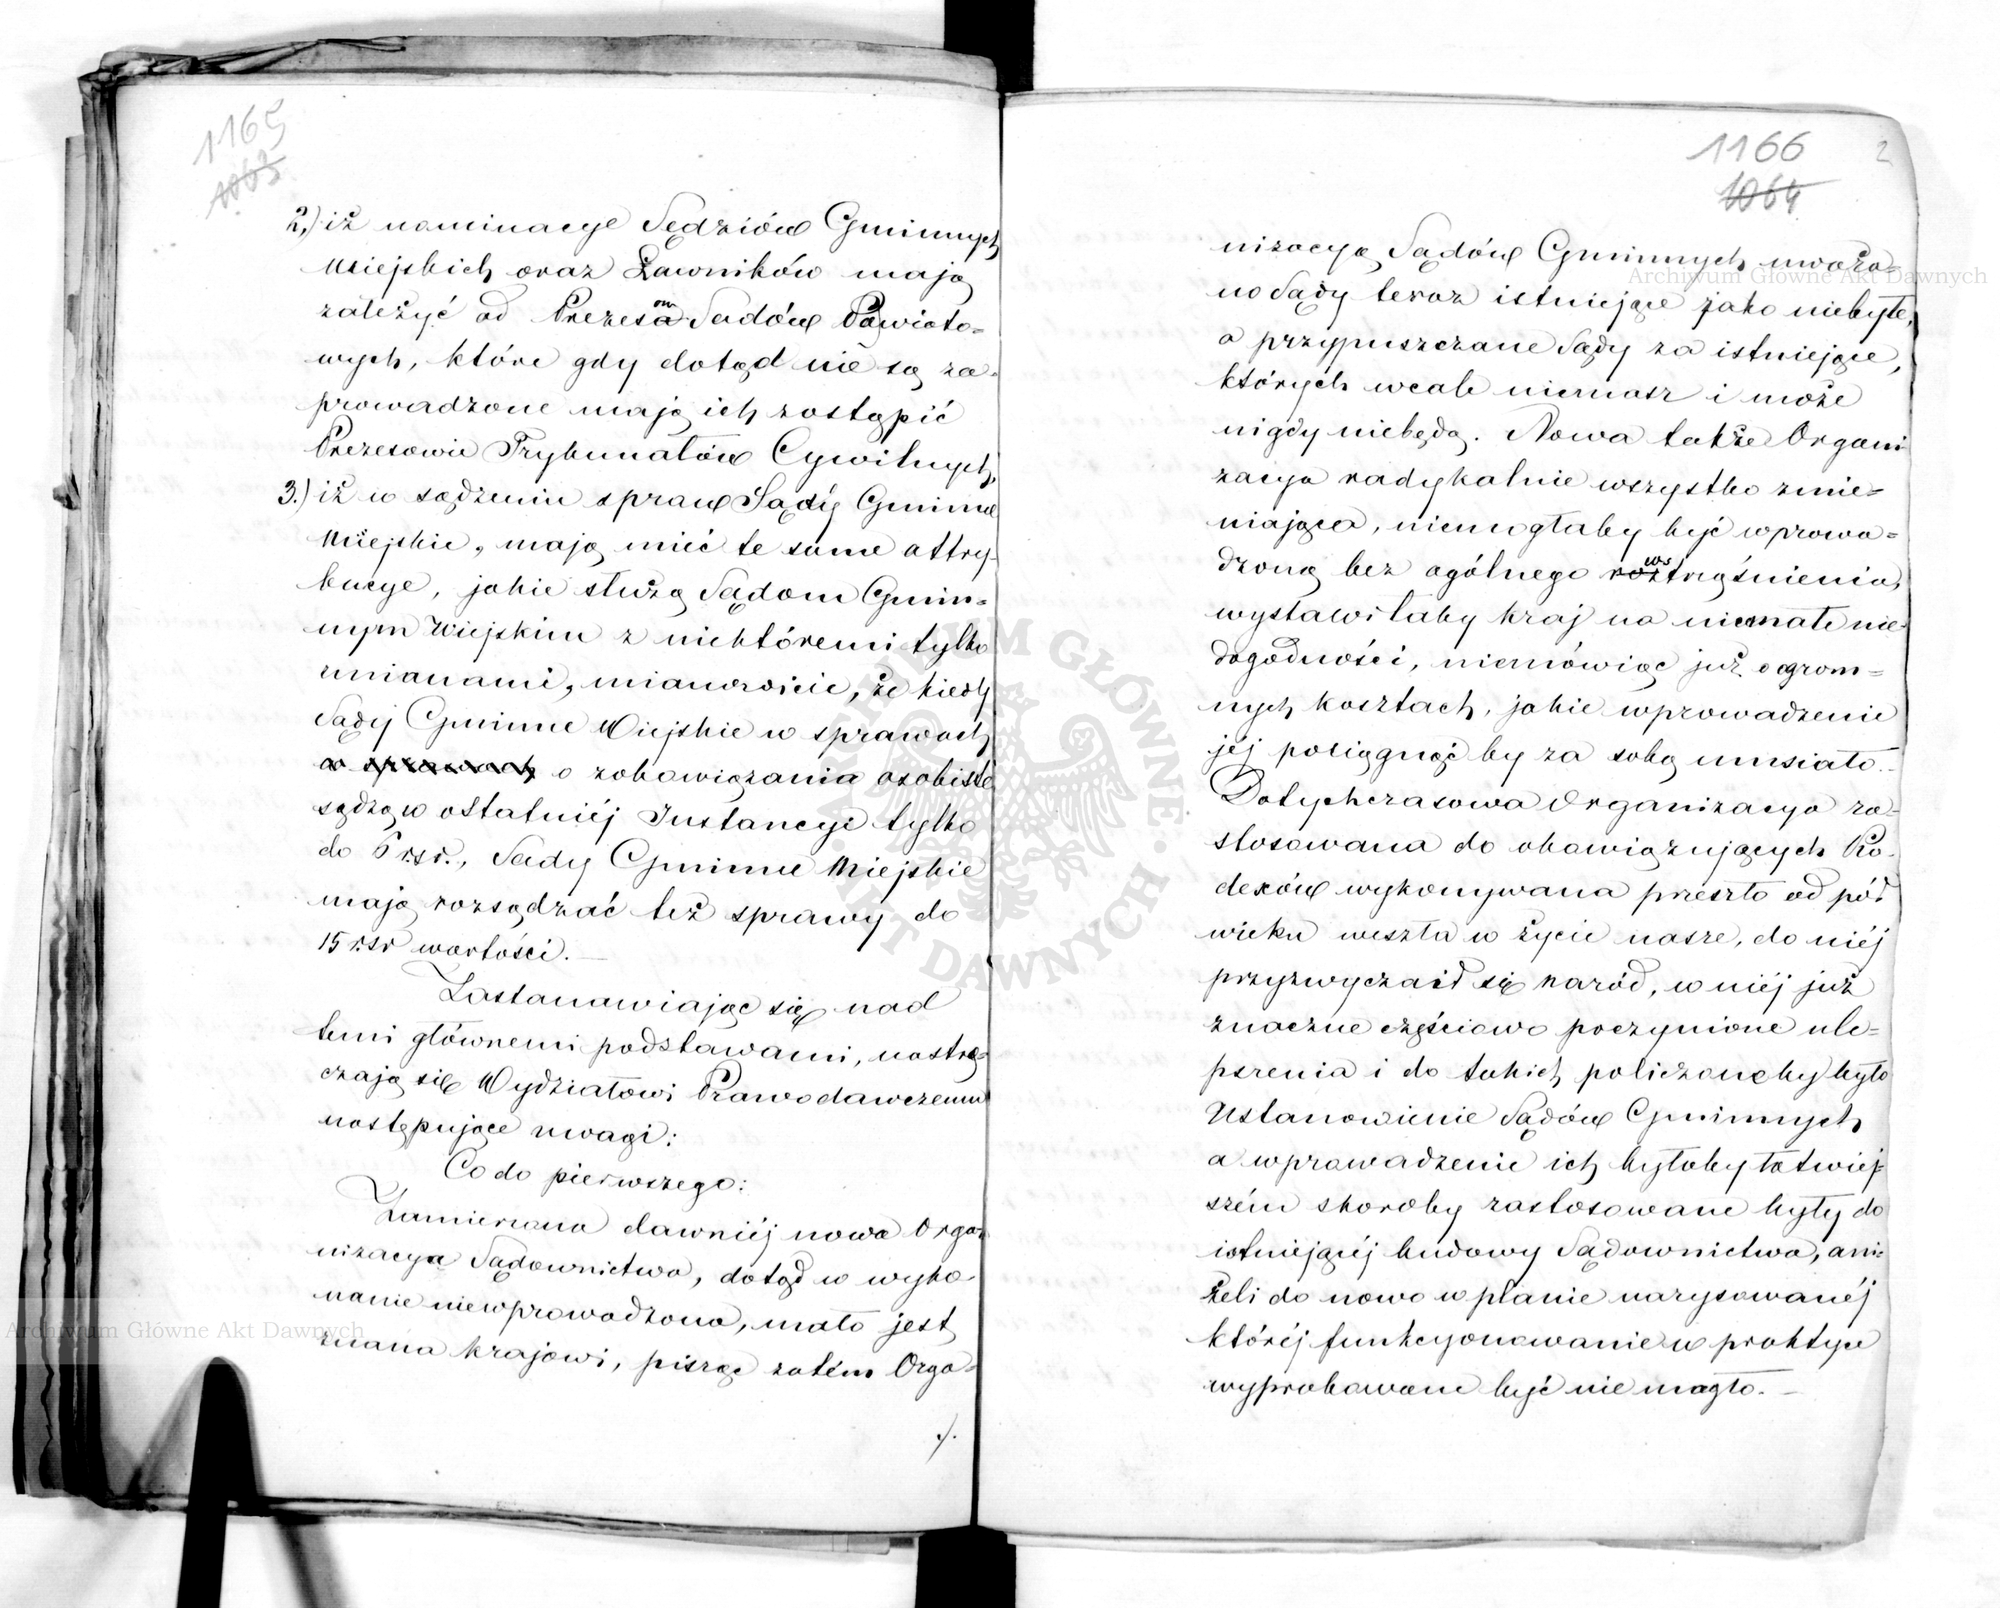 1165
1063
2.) iż nominacye Sędziów Gminnych
Miejskich oraz Ławników mają
zależyć od Prezesa Sądów Powiato=
wych, które gdy dotąd nie są za=
prowadzone mają ich zastąpić
Prezesowie Trybunałów Cywilnych,
3.) iż w sądzeniu spraw Sądy Gminne
Miejskie, mają mieć te same attry-
bucye, jakie służą Sądom Gmin=
nym Wiejskim z niektóremi tylko
zmianami, mianowicie, że kiedy
Sądy Gminne Wiejskie w sprawach
w sprawach o zobowiązania osobiste
sądzą w ostatniéj Instancyi tylko
do rsr., Sądy Gminne Miejskie
mają rozsądzać też sprawy do
15 rsr wartości. —
Zastanawiając się nad
temi głównemi podstawami, nastrę=
czają się Wydziałowi Prawodawczemu
następujące uwagi:
Co do pierwszego:
Zamierzona dawniéj nowa Orga=
nizacya Sądownictwa, dotąd w wyko-
nanie niewprowadzona, mało jest
znana krajowi, pisząc zatém Orga=
./.
1166
2
1064
nizacyą Sądów Gminnych uważa=
no Sądy teraz istniejące jako niebyłe,
a przypuszczane Sądy za istniejące,
których wcale niemasz i może
nigdy niebędą. Nowa także Organi
zacya radykalnie wszystko zmie=
niająca, niemogłaby być wprowa=
dzoną bez ogólnego wstrząśnienia,
wystawiłaby kraj na niemałe nie-
dogodności, niemówiąc już o ogrom=
nych kosztach, jakie wprowadzenie
jéj pociągnąć by za sobą musiało. —
Dotychczasowa Organizacya za=
stosowana do obowiązujących Ko-
dexów wykonywana przeszło od pół
wieku weszła w życie nasze, do niéj
przyzwyczaił się naród, w niéj już
znaczne częściowo poczynione ule=
pszenia i do takich policzoneby było
Ustanowienie Sądów Gminnych
a wprowadzenie ich byłoby łatwiej=
szém skoroby zastosowane były do
istniejącéj budowy Sądownictwa, ani=
żeli do nowo w planie narysowanéj
któréj funkcyonowanie w praktyce
wyprobowane być nie mogło. —
Archiwum Główne Akt Dawnych
Archiwum Główne Akt Dawnych
ARCHIWUM GŁÓWNE
AKT DAWNYCH